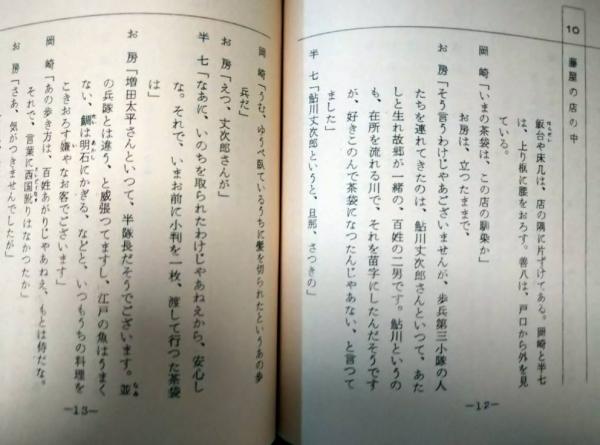 10 藤屋の店の中
飯台や床几は、店の隅に片ずけてある。岡崎と半七
は、上り框に腰をおろす。善八は、戸口から外を見
ている。
岡　崎「いまの茶袋は、この店の馴染か」
お房は、立つたままで、
お　房「そう言うわけじやあございませんが、歩兵第三小隊の人
たちを連れてきたのは、鮎川丈次郎さんといつて、あた
しと生れ故郷が一緒の、百姓の二男です。鮎川というの
も、在所を流れる川で、それを苗字にしたんだそうです
が、好きこのんで茶袋になつたんじやあない、と言つて
ました」
半　七「鮎川丈次郎というと、旦那、さつきの」
—12—
岡　崎「うむ、ゆうべ臥ているうちに髪を切られたというあの歩
兵だ」
お　房「えつ、丈次郎さんが」
半　七「なあに、いのちを取られたわけじやあねえから、安心し
な。それで、いまお前に小判を一枚、渡して行つた茶袋
は」
お　房「増田太平さんといつて、半隊長だそうでございます。並
の兵隊とは違う、と威張つてますし、江戸の魚はうまく
ない、鯛は明石にかぎる、などと、いつもうちの料理を
こきおろす嫌やなお客でございます」
岡　崎「あの歩き方は、百姓あがりじやあねえ、もとは侍だな。
それで、言葉に西国訛りはなかつたか」
お　房「さあ、気がつきませんでしたが」
—13—